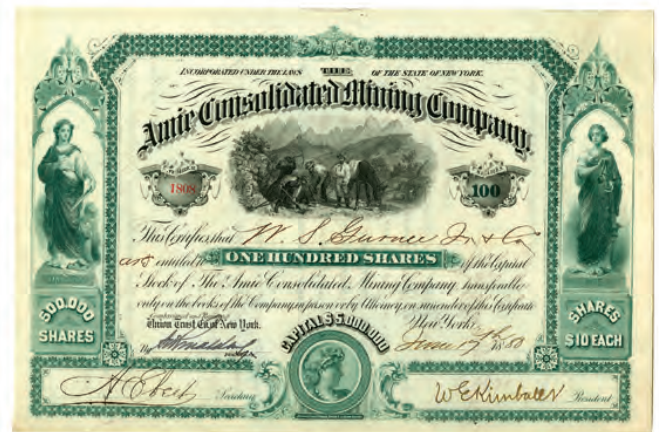 INCORPORATED UNDER THE LAWS THE OF THE STATE OF NEW YORK.
Amie Consolidated Mining Company.
NUMBER
1808
SHARES
100
This Certifies that W. S. Gurnee Jr & Co
are entitled to ONE HUNDRED SHARES of the Capital
Stock of The Amie Consolidated Mining Company transferable
only on the books of the Company in person or by Attorney on surrender of this Certificate
Countersigned and Registered
Union Trust Co. of New York.
New York
June 17th 1880
By
500,000
SHARES
CAPITAL $5,000,000
SHARES
$10 EACH
Secretary
W E Kimball
President